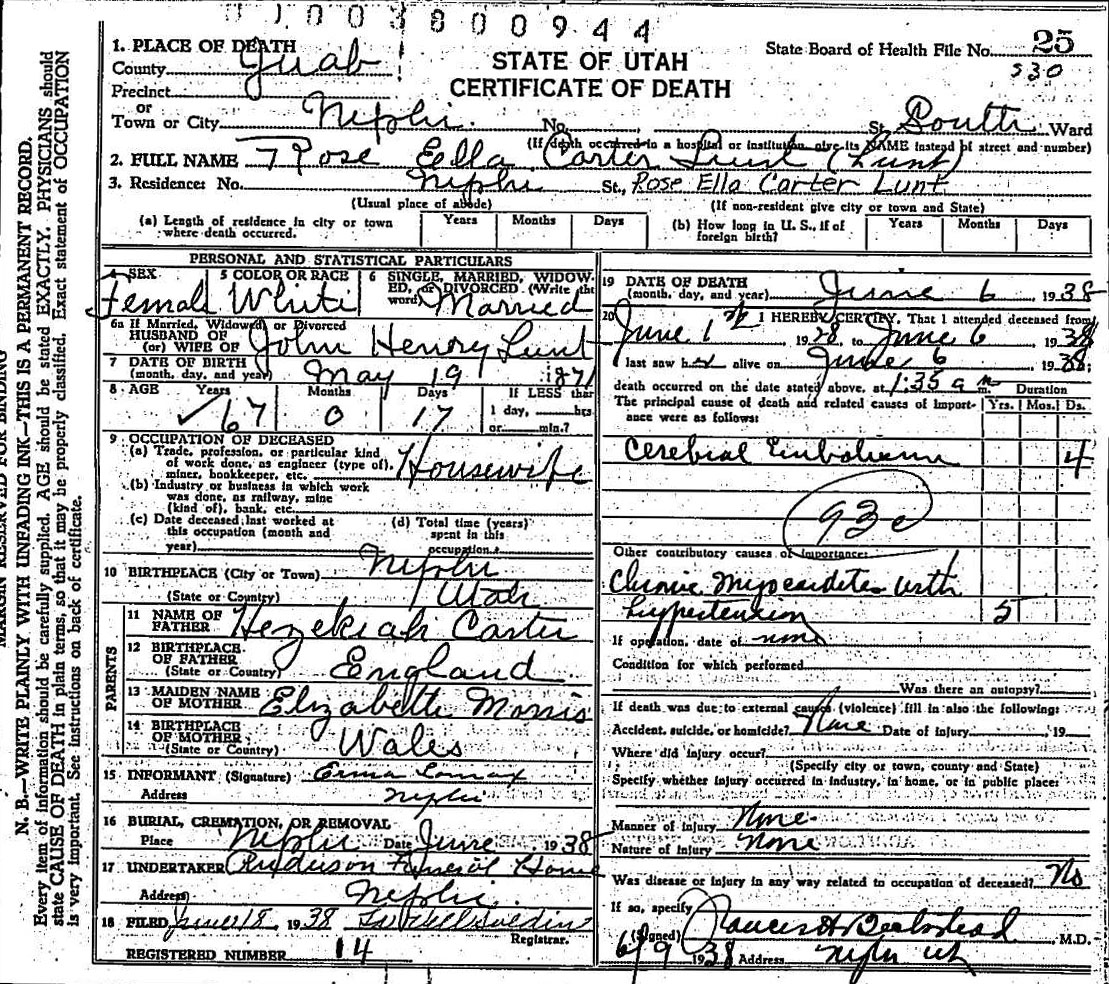 0 1 0 0 3 8 0 0 9 4 4
1. PLACE OF DEATH
County Juab
Precinct
or
Town or City Nephi. No. St. South Ward
STATE OF UTAH
CERTIFICATE OF DEATH
State Board of Health File No. 25
530
(If death occurred in a hospital or institution give its NAME instead of street and number)
2. FULL NAME Rose Ella Carter Lunt (Lunt)
3. Residence: No. Nephi St., Rose Ella Carter Lunt
(Usual place of abode) (If non-resident give city or town and State)
(a) Length of residence in city or town where death occurred. Years Months Days
(b) How long in U. S., if of foreign birth? Years Months Days
PERSONAL AND STATISTICAL PARTICULARS
4 SEX 5 COLOR OR RACE 6 SINGLE, MARRIED, WIDOW-
ED, or DIVORCED. (Write the
word)
Female White Married
6a If Married, Widowed, or Divorced
HUSBAND OF
(or) WIFE OF John Henry Lunt
7 DATE OF BIRTH
(month, day, and year) May 19 1871
8 AGE Years Months Days If LESS than
67 0 17 1 day, hrs.
or min.?
9 OCCUPATION OF DECEASED
(a) Trade, profession, or particular kind
of work done, as engineer (type of),
miner, bookkeeper, etc. Housewife
(b) Industry or business in which work
was done, as railway, mine
(kind of), bank, etc.
(c) Date deceased last worked at
this occupation (month and
year)
(d) Total time (years)
spent in this
occupation
10 BIRTHPLACE (City or Town) Nephi
(State or Country) Utah
PARENTS
11 NAME OF
FATHER Hezekiah Carter
12 BIRTHPLACE
OF FATHER
(State or Country) England
13 MAIDEN NAME
OF MOTHER Elizabeth Morris
14 BIRTHPLACE
OF MOTHER
(State or Country) Wales
15 INFORMANT (Signature) Erma Lomax
Address Nephi
16 BURIAL, CREMATION, OR REMOVAL
Place Nephi Date June 1938
17 UNDERTAKER Anderson Funeral Home
Address Nephi.
18 FILED June 18 1938
Registrar.
REGISTERED NUMBER 14
19 DATE OF DEATH
(month, day, and year) June 6 1938
20 I HEREBY CERTIFY, That I attended deceased from
June 1st 1938, to June 6 1938
I last saw her alive on June 6 1938;
death occurred on the date stated above, at 1:35 a m.
Duration
The principal cause of death and related causes of import-
ance were as follows: Yrs. Mos. Ds.
Cerebral Embolism 4
93c
Other contributory causes of importance:
Chronic Myocarditis with
hypertension 5
If operation, date of none
Condition for which performed
Was there an autopsy?
If death was due to external causes (violence) fill in also the following:
Accident, suicide, or homicide? None Date of injury 19
Where did injury occur?
(Specify city or town, county and State)
Specify whether injury occurred in industry, in home, or in public place:
Manner of injury None
Nature of injury None
Was disease or injury in any way related to occupation of deceased? No
If so, specify
(Signed) M.D.
6/9 1938 Address Nephi Ut
MARGIN RESERVED FOR BINDING
N. B.—WRITE PLAINLY WITH UNFADING INK—THIS IS A PERMANENT RECORD.
Every item of information should be carefully supplied. AGE should be stated EXACTLY. PHYSICIANS should
state CAUSE OF DEATH in plain terms, so that it may be properly classified. Exact statement of OCCUPATION
is very important. See instructions on back of certificate.